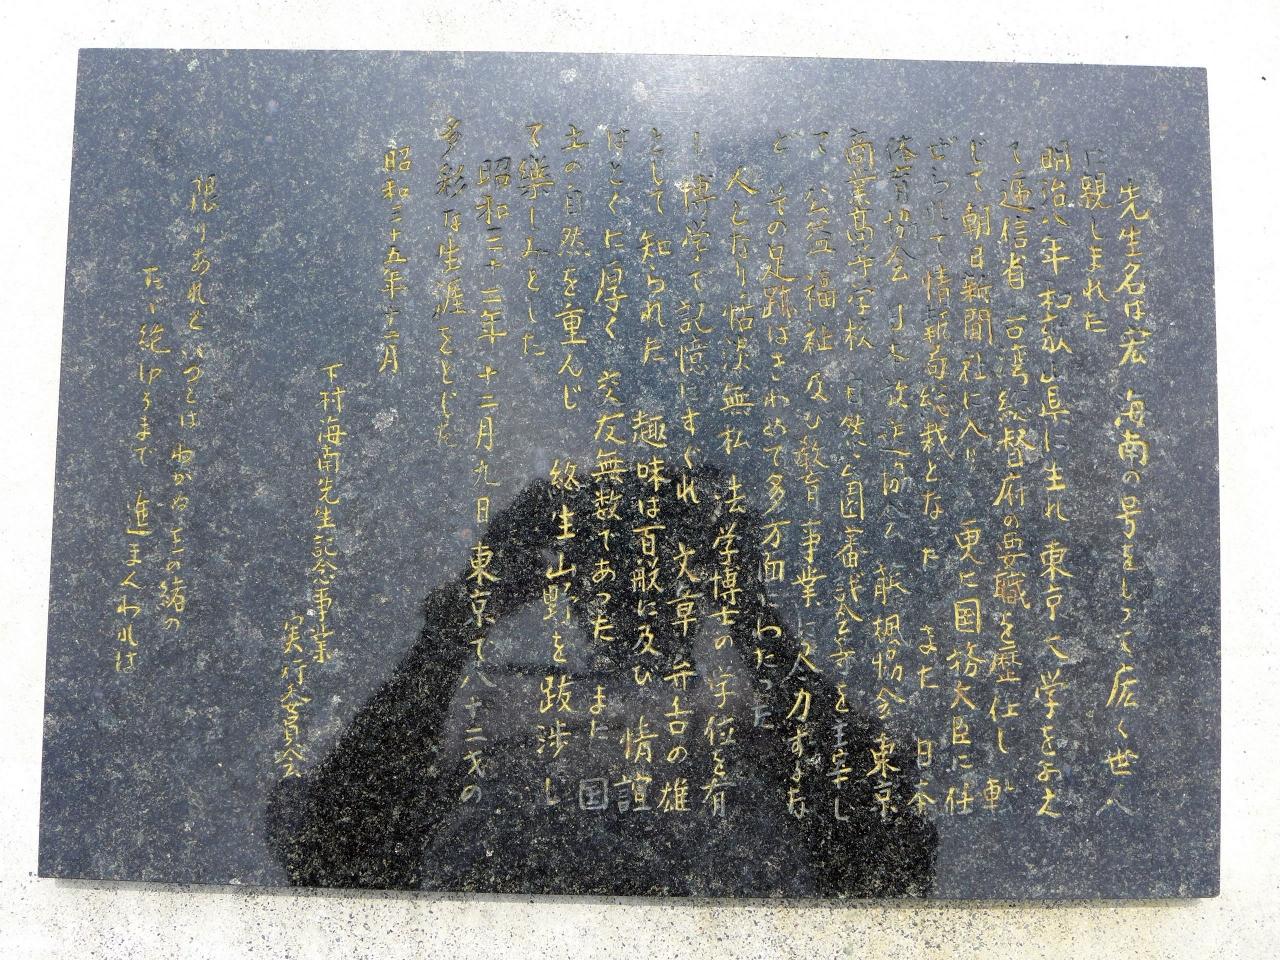 先生名は宏 海南の号をもって広く世人
に親しまれた
明治八年和歌山県に生れ 東京大学をおえ
て逓信省 台湾総督府の要職を歴任し 転
じて朝日新聞社に入り 更に国務大臣に任
ぜられて情報局総裁となった また 日本
体育協会 日本 協会 旅楓協会 東京
商業高等学校 自然公園審議会等を主宰し
て 公益福祉及び教育事業に尽力するな
ど その足跡はきわめて多方面にわたった
人となり恬淡無私 法学博士の学位を有
し 博学で記憶にすぐれ 文章 弁舌の雄
として知られた 趣味は百般に及び 情誼
はとくに厚く 交友無数であった また 国
立の自然を重んじ 終生山野を跋渉し
て楽しみとした
昭和三十二年十二月九日 東京で八十二才の
多彩な生涯をとじた
昭和三十五年十二月
下村海南先生記念事業
実行委員会
限りあれど いつとは わかぬ 玉の緒の
たゞ絶ゆるまで 進まんわれは